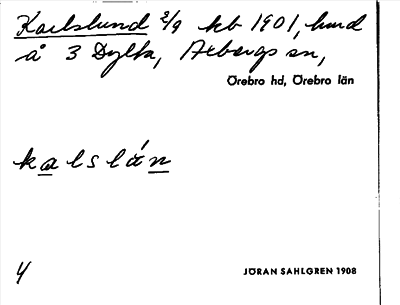 Karlslund 2/9 kb 1901, hmd
å 3 Dylta, Axbergs sn,
Örebro hd, Örebro län
kalslán
4
JÖRAN SAHLGREN 1908